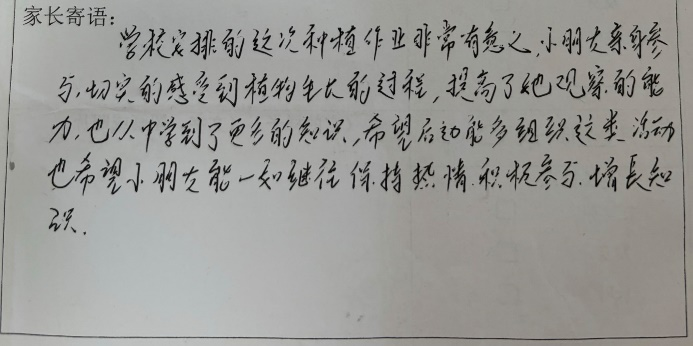 家长寄语:
学校安排的这次种植作业非常有意义,小朋友亲身参
与,切实的感受到植物生长的过程,提高了她观察的能
力,也从中学到了更多的知识,希望后边能多组织这类活动
也希望小朋友能一如继往保持热情.积极参与.增長知
识.